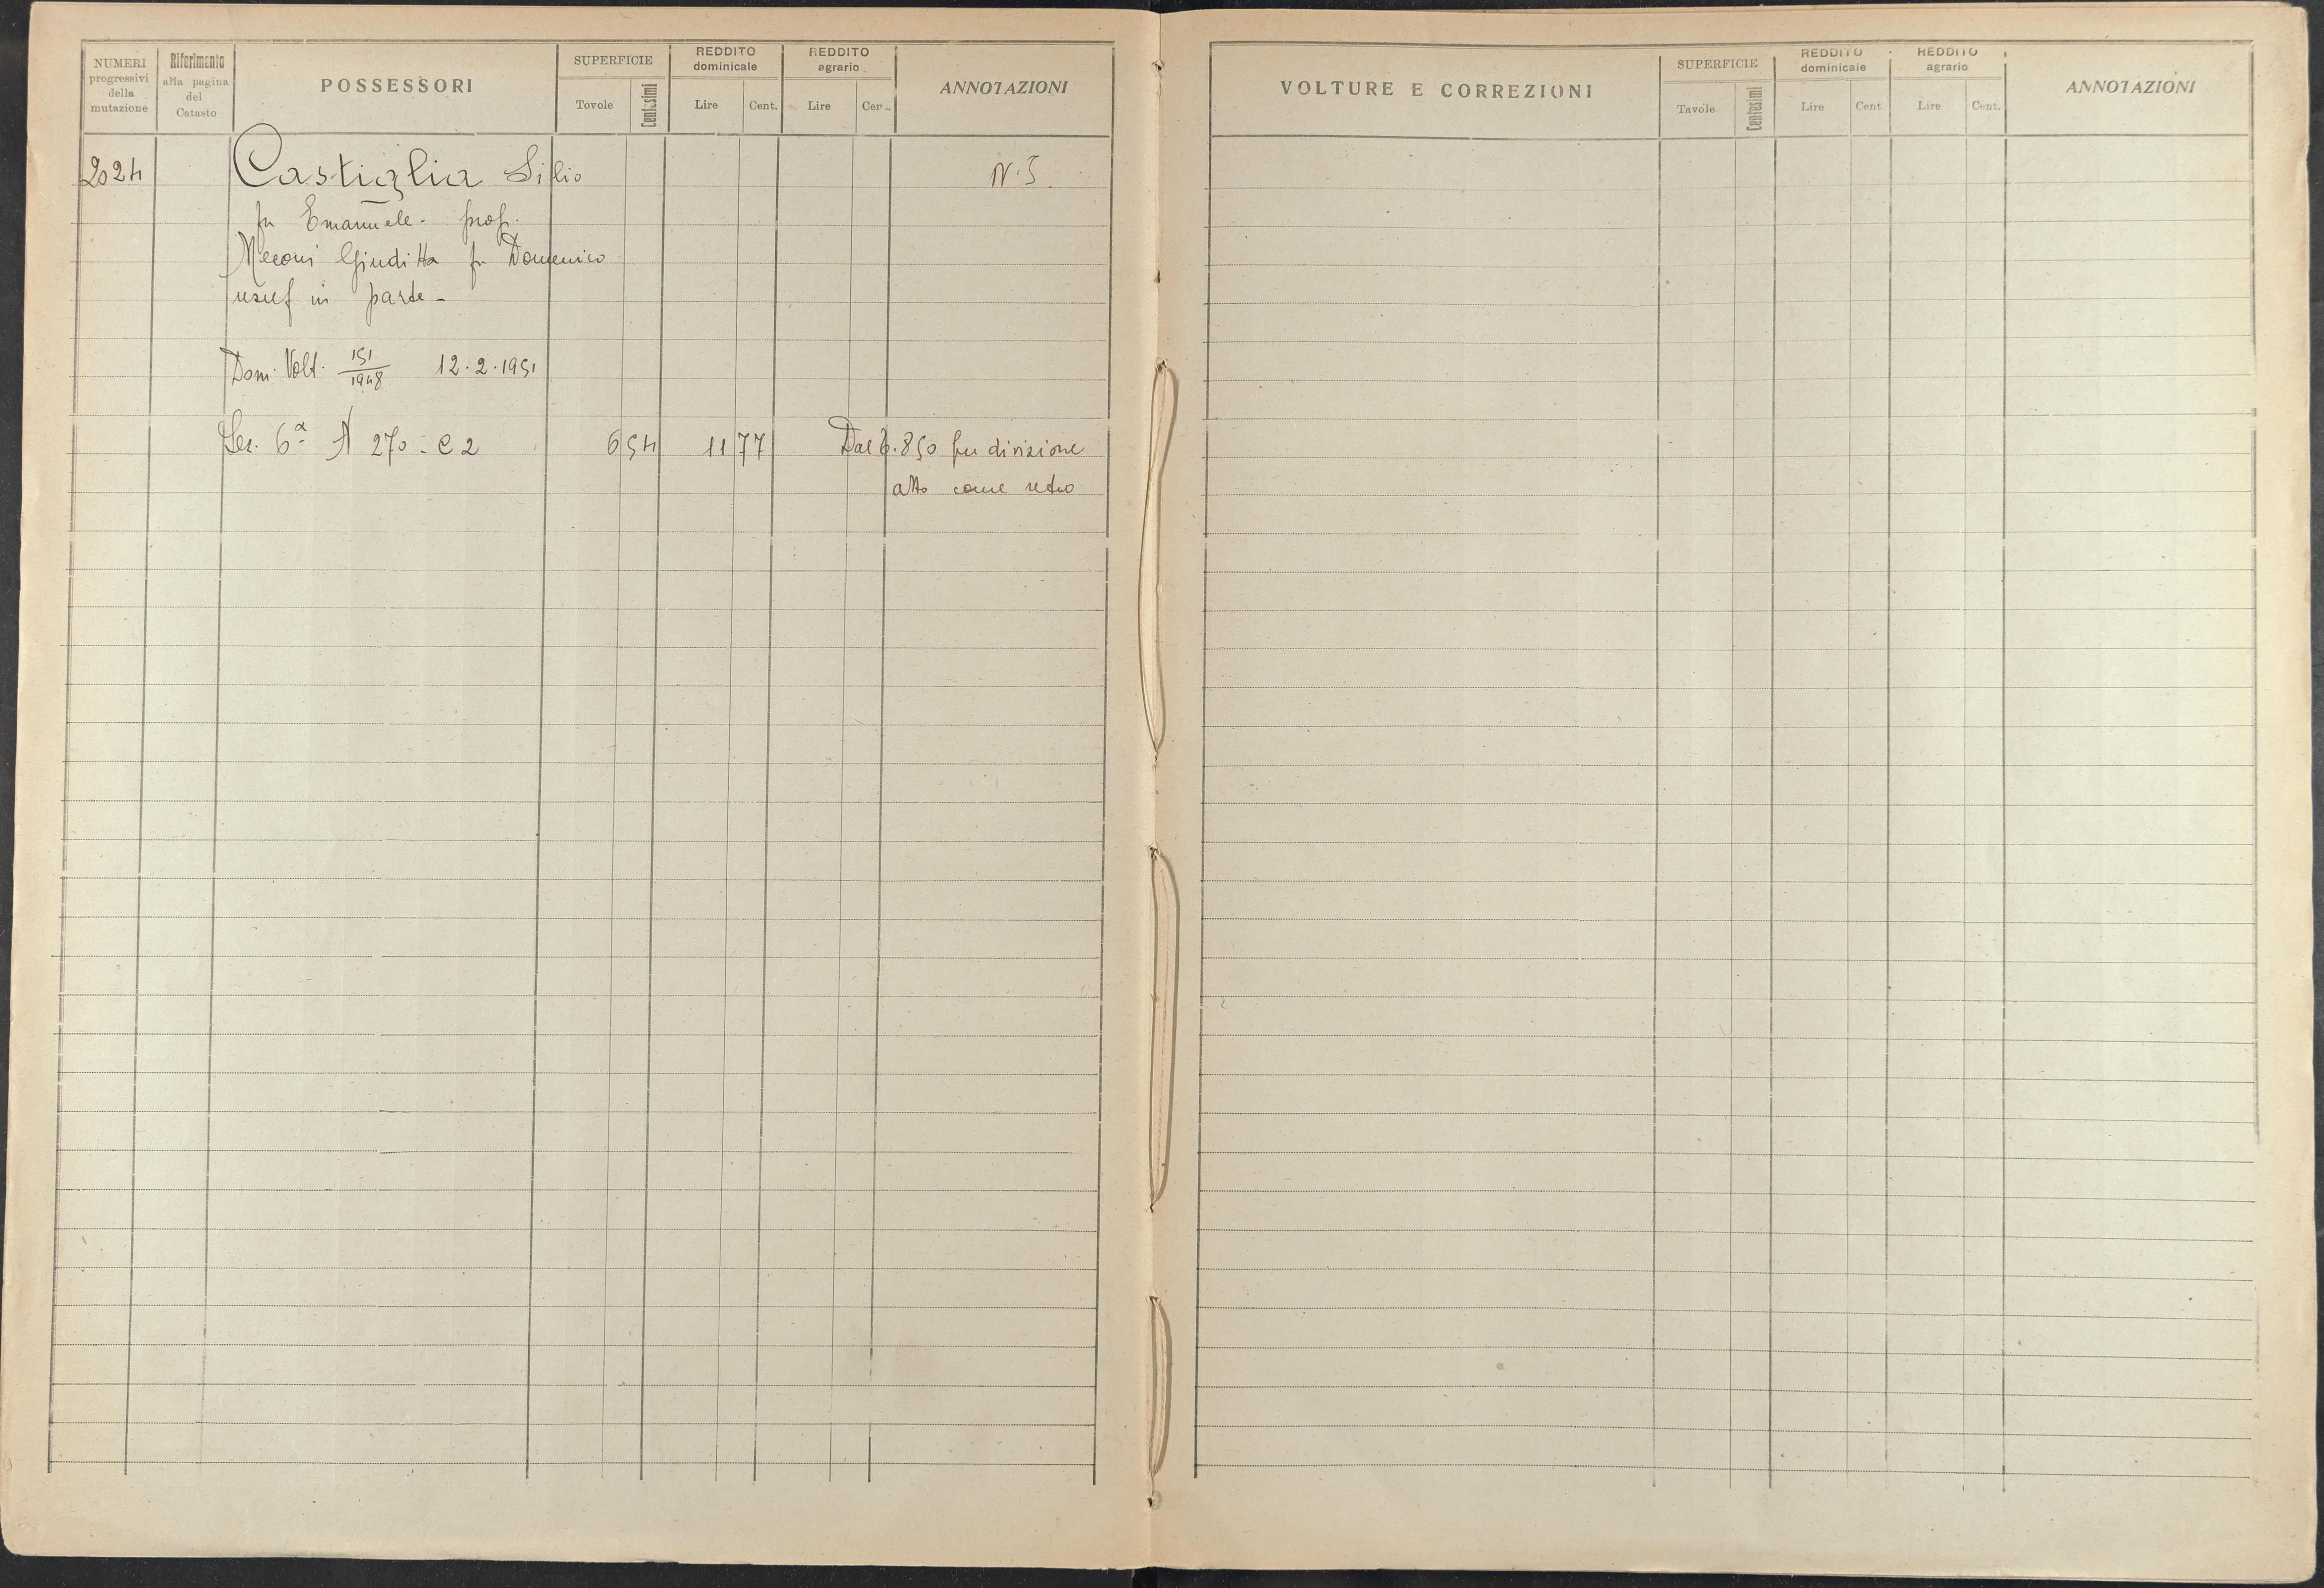 NUMERI progressivi della mutazione
Riferimento alla pagina del Catasto
POSSESSORI
SUPERFICIE
Tovole Centesimi
REDDITO dominicale
Lire Cent.
REDDITO agrario
Lire Cen..
ANNOTAZIONI
2024 Castiglia Silio N. 5.
fu Emanuele - prop.
Meconi Giuditta fu Domenico
usuf in parte -
Dom. Volt. 151/1948 12.2.1951
Sez. 6ª A 270 - C 2 6 54 11 77 Dal 850 per divisione
atto come retro
VOLTURE E CORREZIONI
SUPERFICIE
Tavole Centesimi
REDDITO dominicale
Lire Cent
REDDITO agrario
Lire Cent.
ANNOTAZIONI